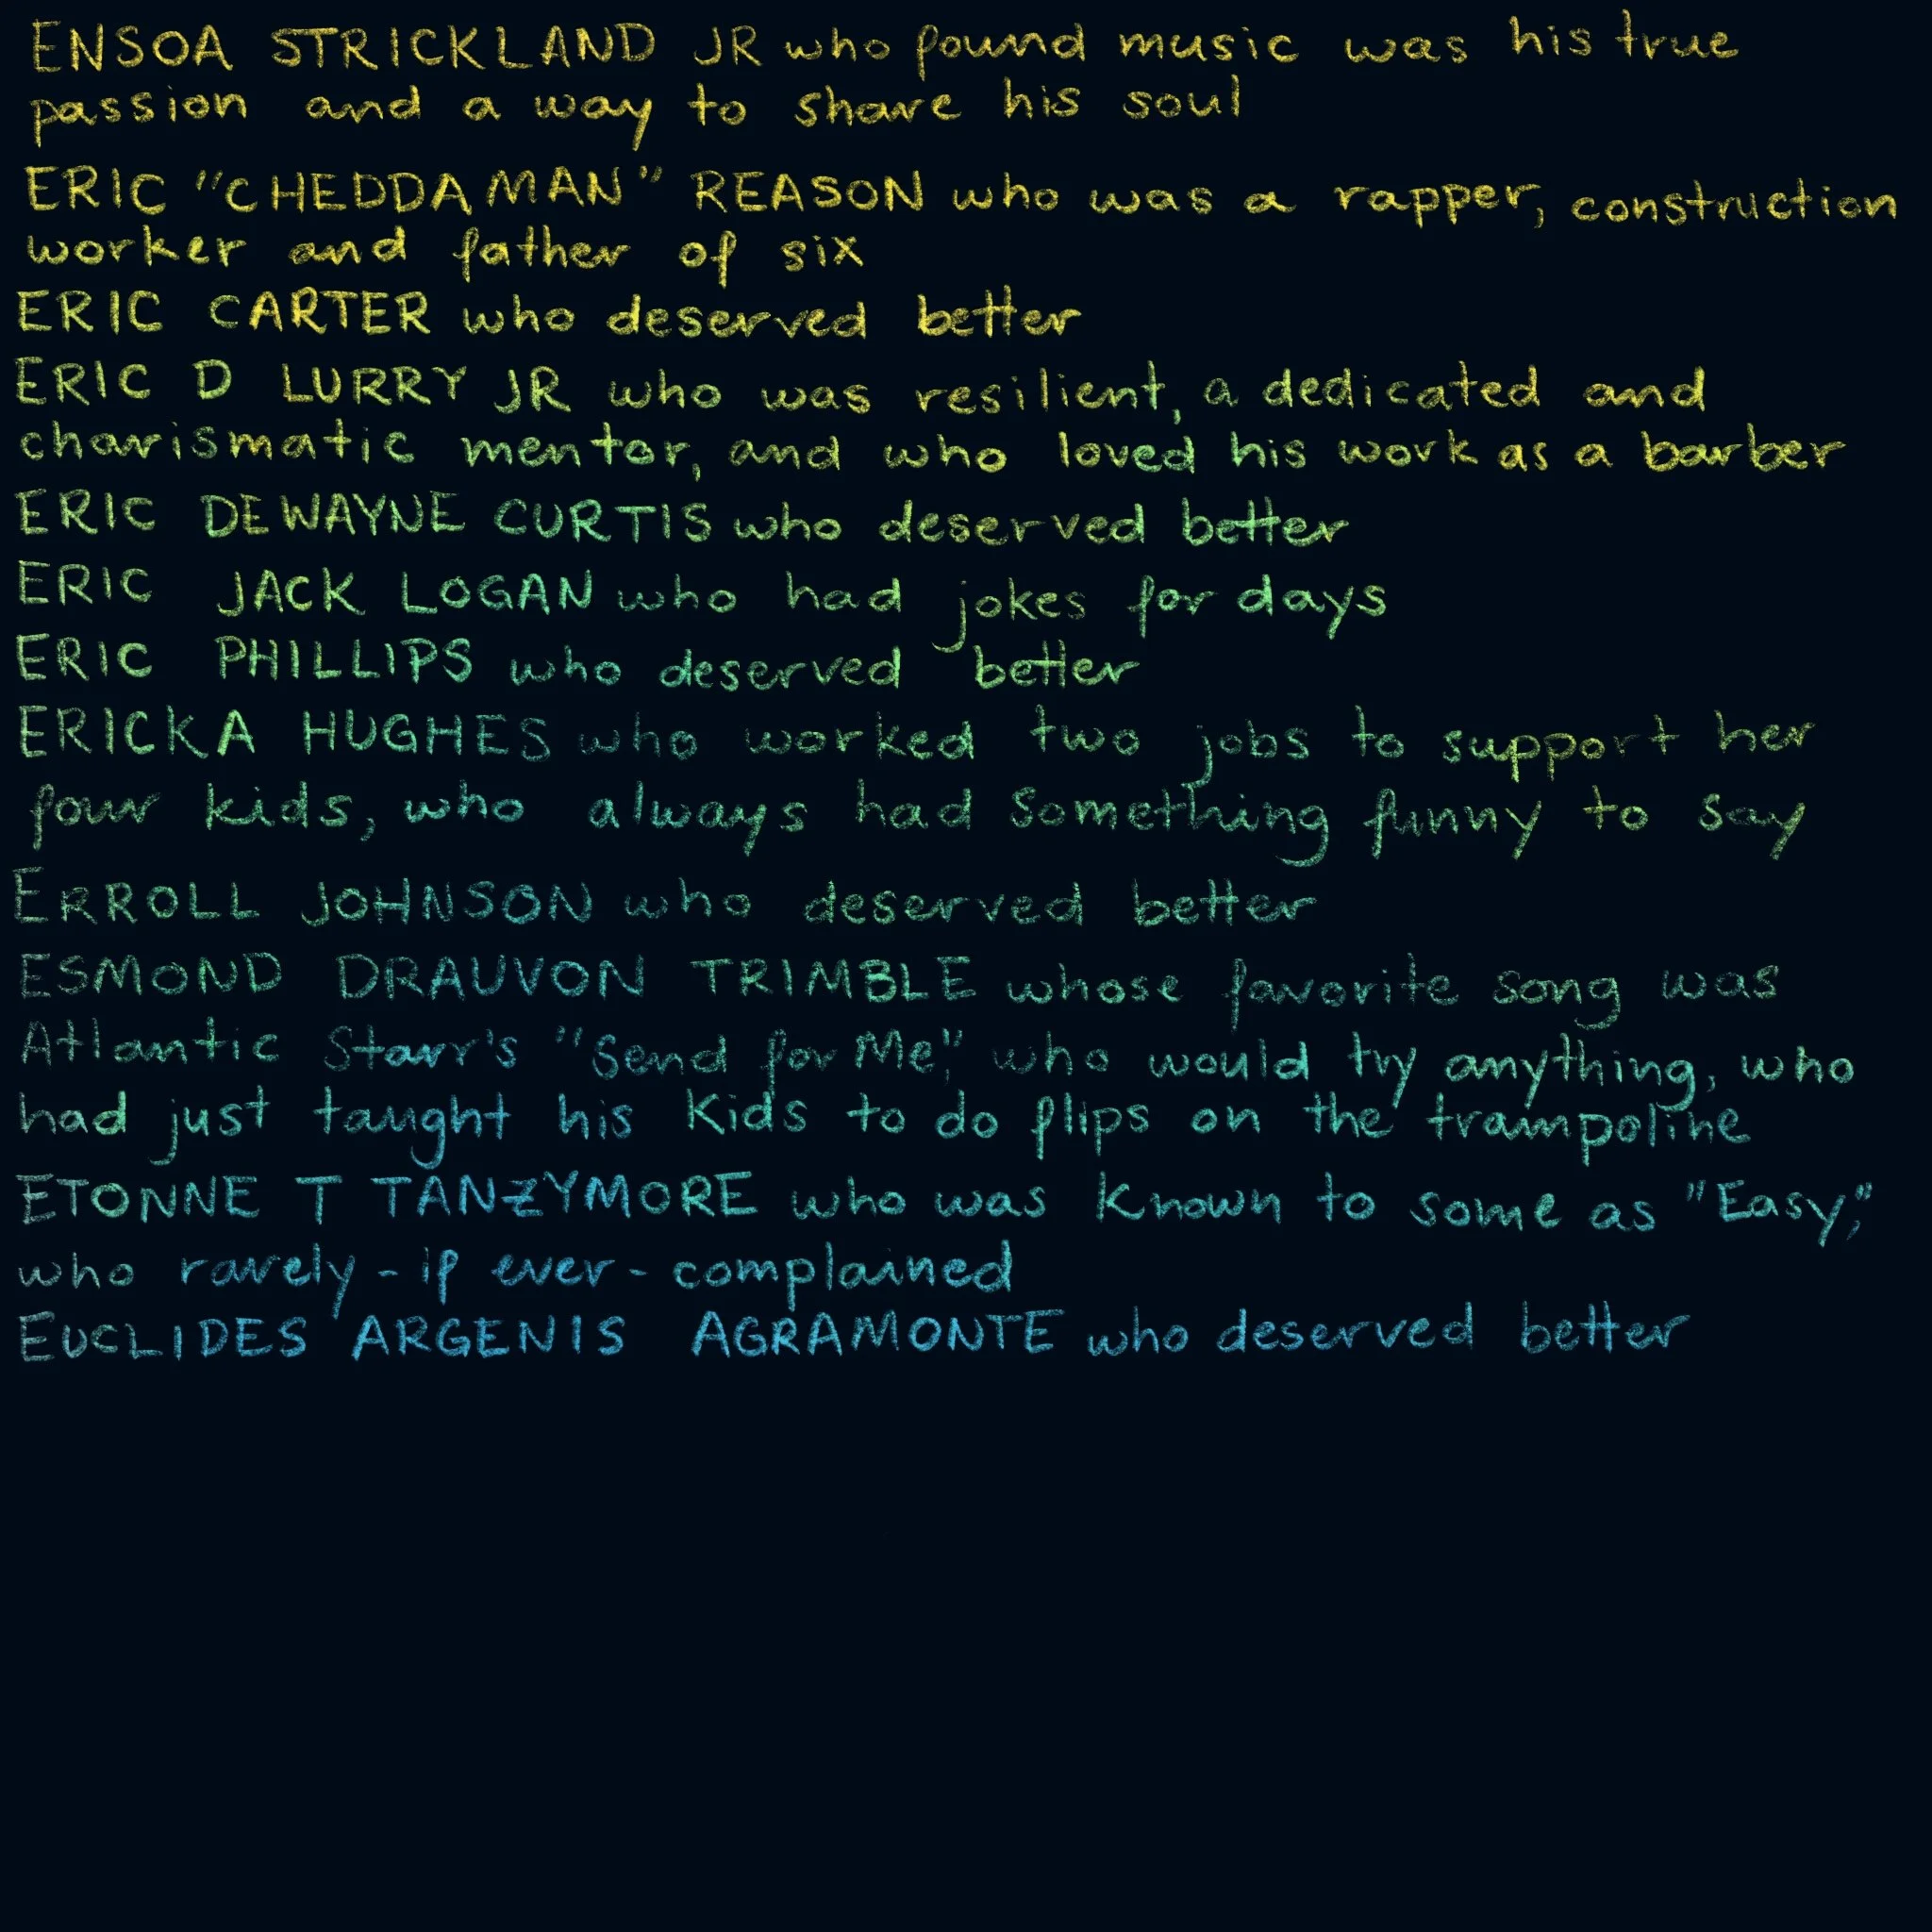 ENSOA STRICKLAND JR who found music was his true
passion and a way to share his soul
ERIC "CHEDDAMAN" REASON who was a rapper, construction
worker and father of six
ERIC CARTER who deserved better
ERIC D LURRY JR who was resilient, a dedicated and
charismatic mentor, and who loved his work as a barber
ERIC DEWAYNE CURTIS who deserved better
ERIC JACK LOGAN who had jokes for days
ERIC PHILLIPS who deserved better
ERICKA HUGHES who worked two jobs to support her
four kids, who always had something funny to say
ERROLL JOHNSON who deserved better
ESMOND DRAUVON TRIMBLE whose favorite song was
Atlantic Starr's "Send for Me," who would try anything, who
had just taught his kids to do flips on the trampoline
ETONNE T TANZYMORE who was known to some as "Easy,"
who rarely - if ever - complained
EUCLIDES ARGENIS AGRAMONTE who deserved better